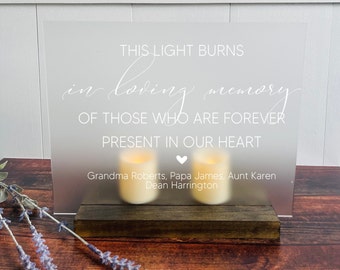 THIS LIGHT BURNS
in loving memory
OF THOSE WHO ARE FOREVER
PRESENT IN OUR HEART
Grandma Roberts, Papa James, Aunt Karen
Dean Harrington